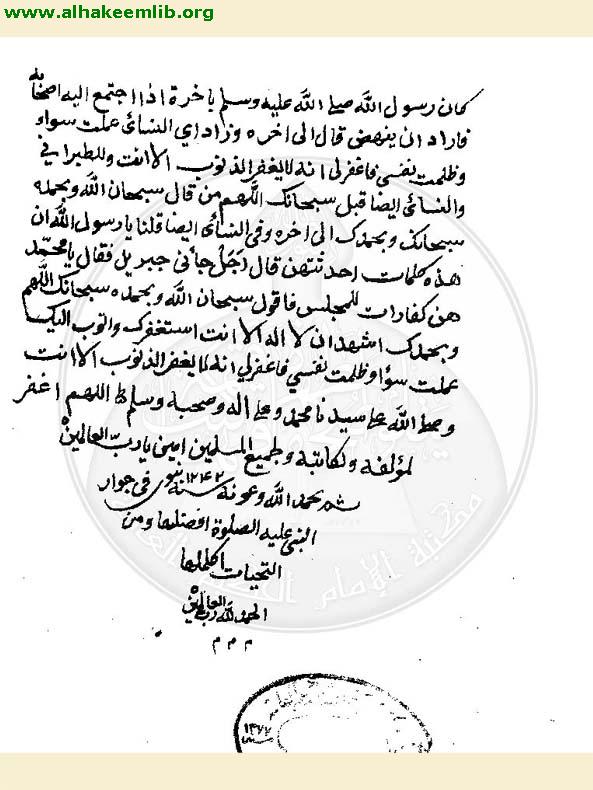 www.alhakeemlib.org
كان رسول الله صلى الله عليه وسلم باخرة اذا اجتمع اليه اصحابه
فاراد ان ينهض قال الى اخره وزاد اي النسائ عملت سواو
وظلمت نفسي فاغفرلي انه لا يغفر الذنوب الا انت وللطبراني
والنسائ ايضا قبل سبحانك اللهم من قال سبحان الله وبحمده
سبحانك وبحمدك الى اخره وفى النسائ ايضا قلنا يا رسول الله ان
هذه كلمات احدثتهن قال رجل جاءني جبريل فقال يا محمد
هن كفارات للمجلس فاقول سبحان الله وبحمده سبحانك اللهم
وبحمدك اشهد ان لا اله الا انت استغفرك واتوب اليك
عملت سؤا وظلمت نفسي فاغفرلي انه لا يغفر الذنوب الا انت
وصلى الله على سيدنا محمد وعلى اله وصحبه وسلم اللهم اغفر
لمؤلفه ولكاتبه ولجميع المسلمين امين يا رب العالمين
تم بحمد الله وعونه سنة ١٢٤٢ في جوار
النبى عليه الصلوة افضلها ومن
التحيات اكملها
الحمد لله رب العالمين
م م م
مكتبة الإمام الحكيم العامة